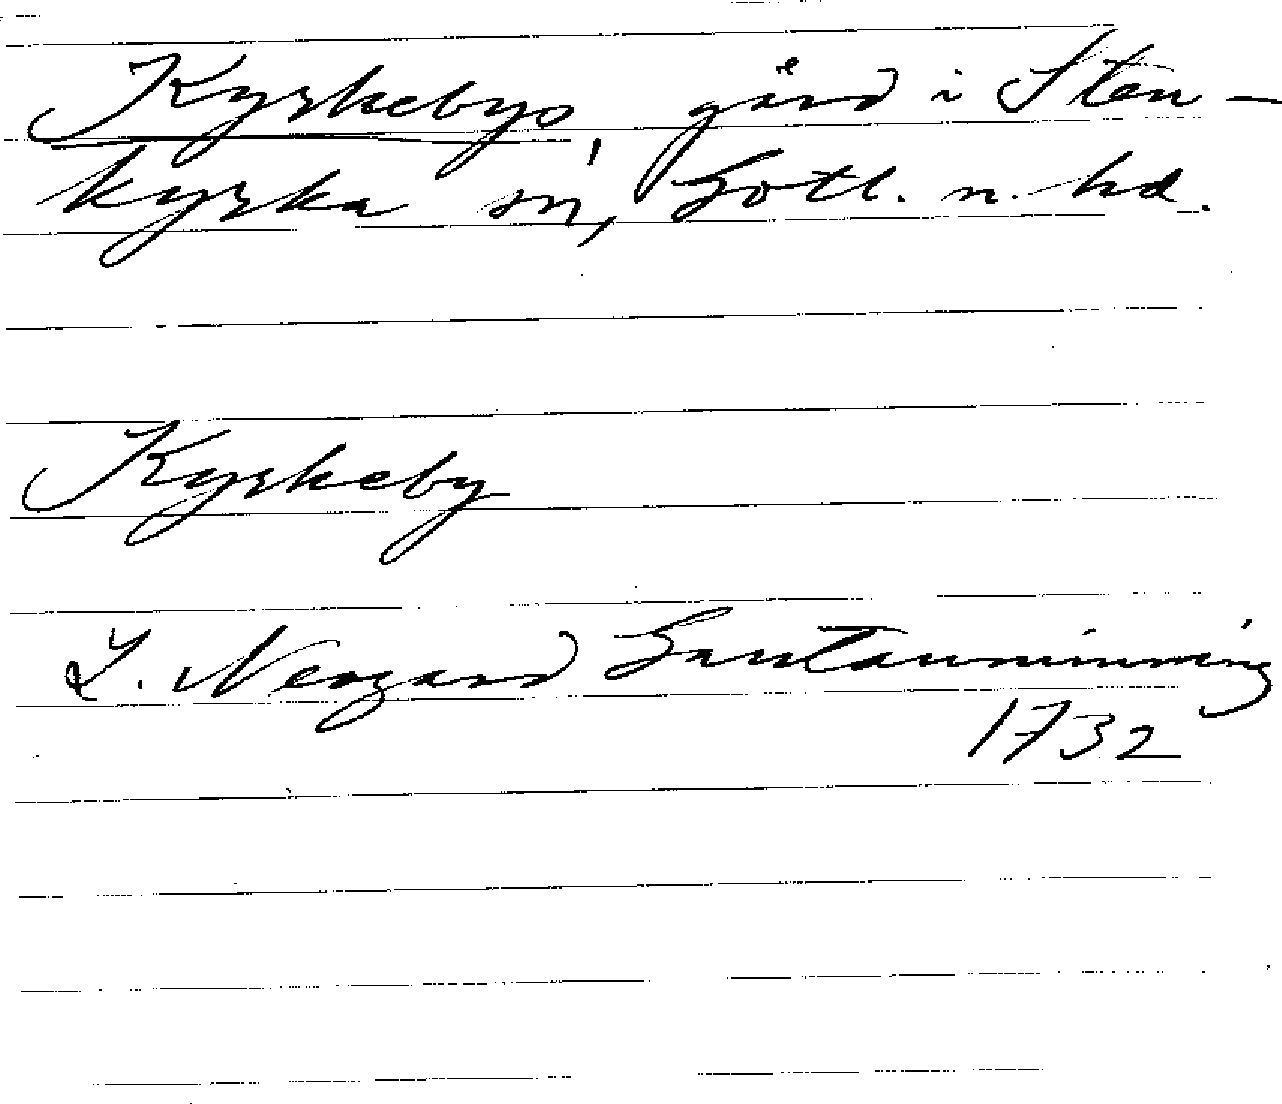 Kyrkebys, gård i Sten-
kyrka sn, Gotl. n. hd.
Kyrkeby
L. Neogard Gautauminning
1732